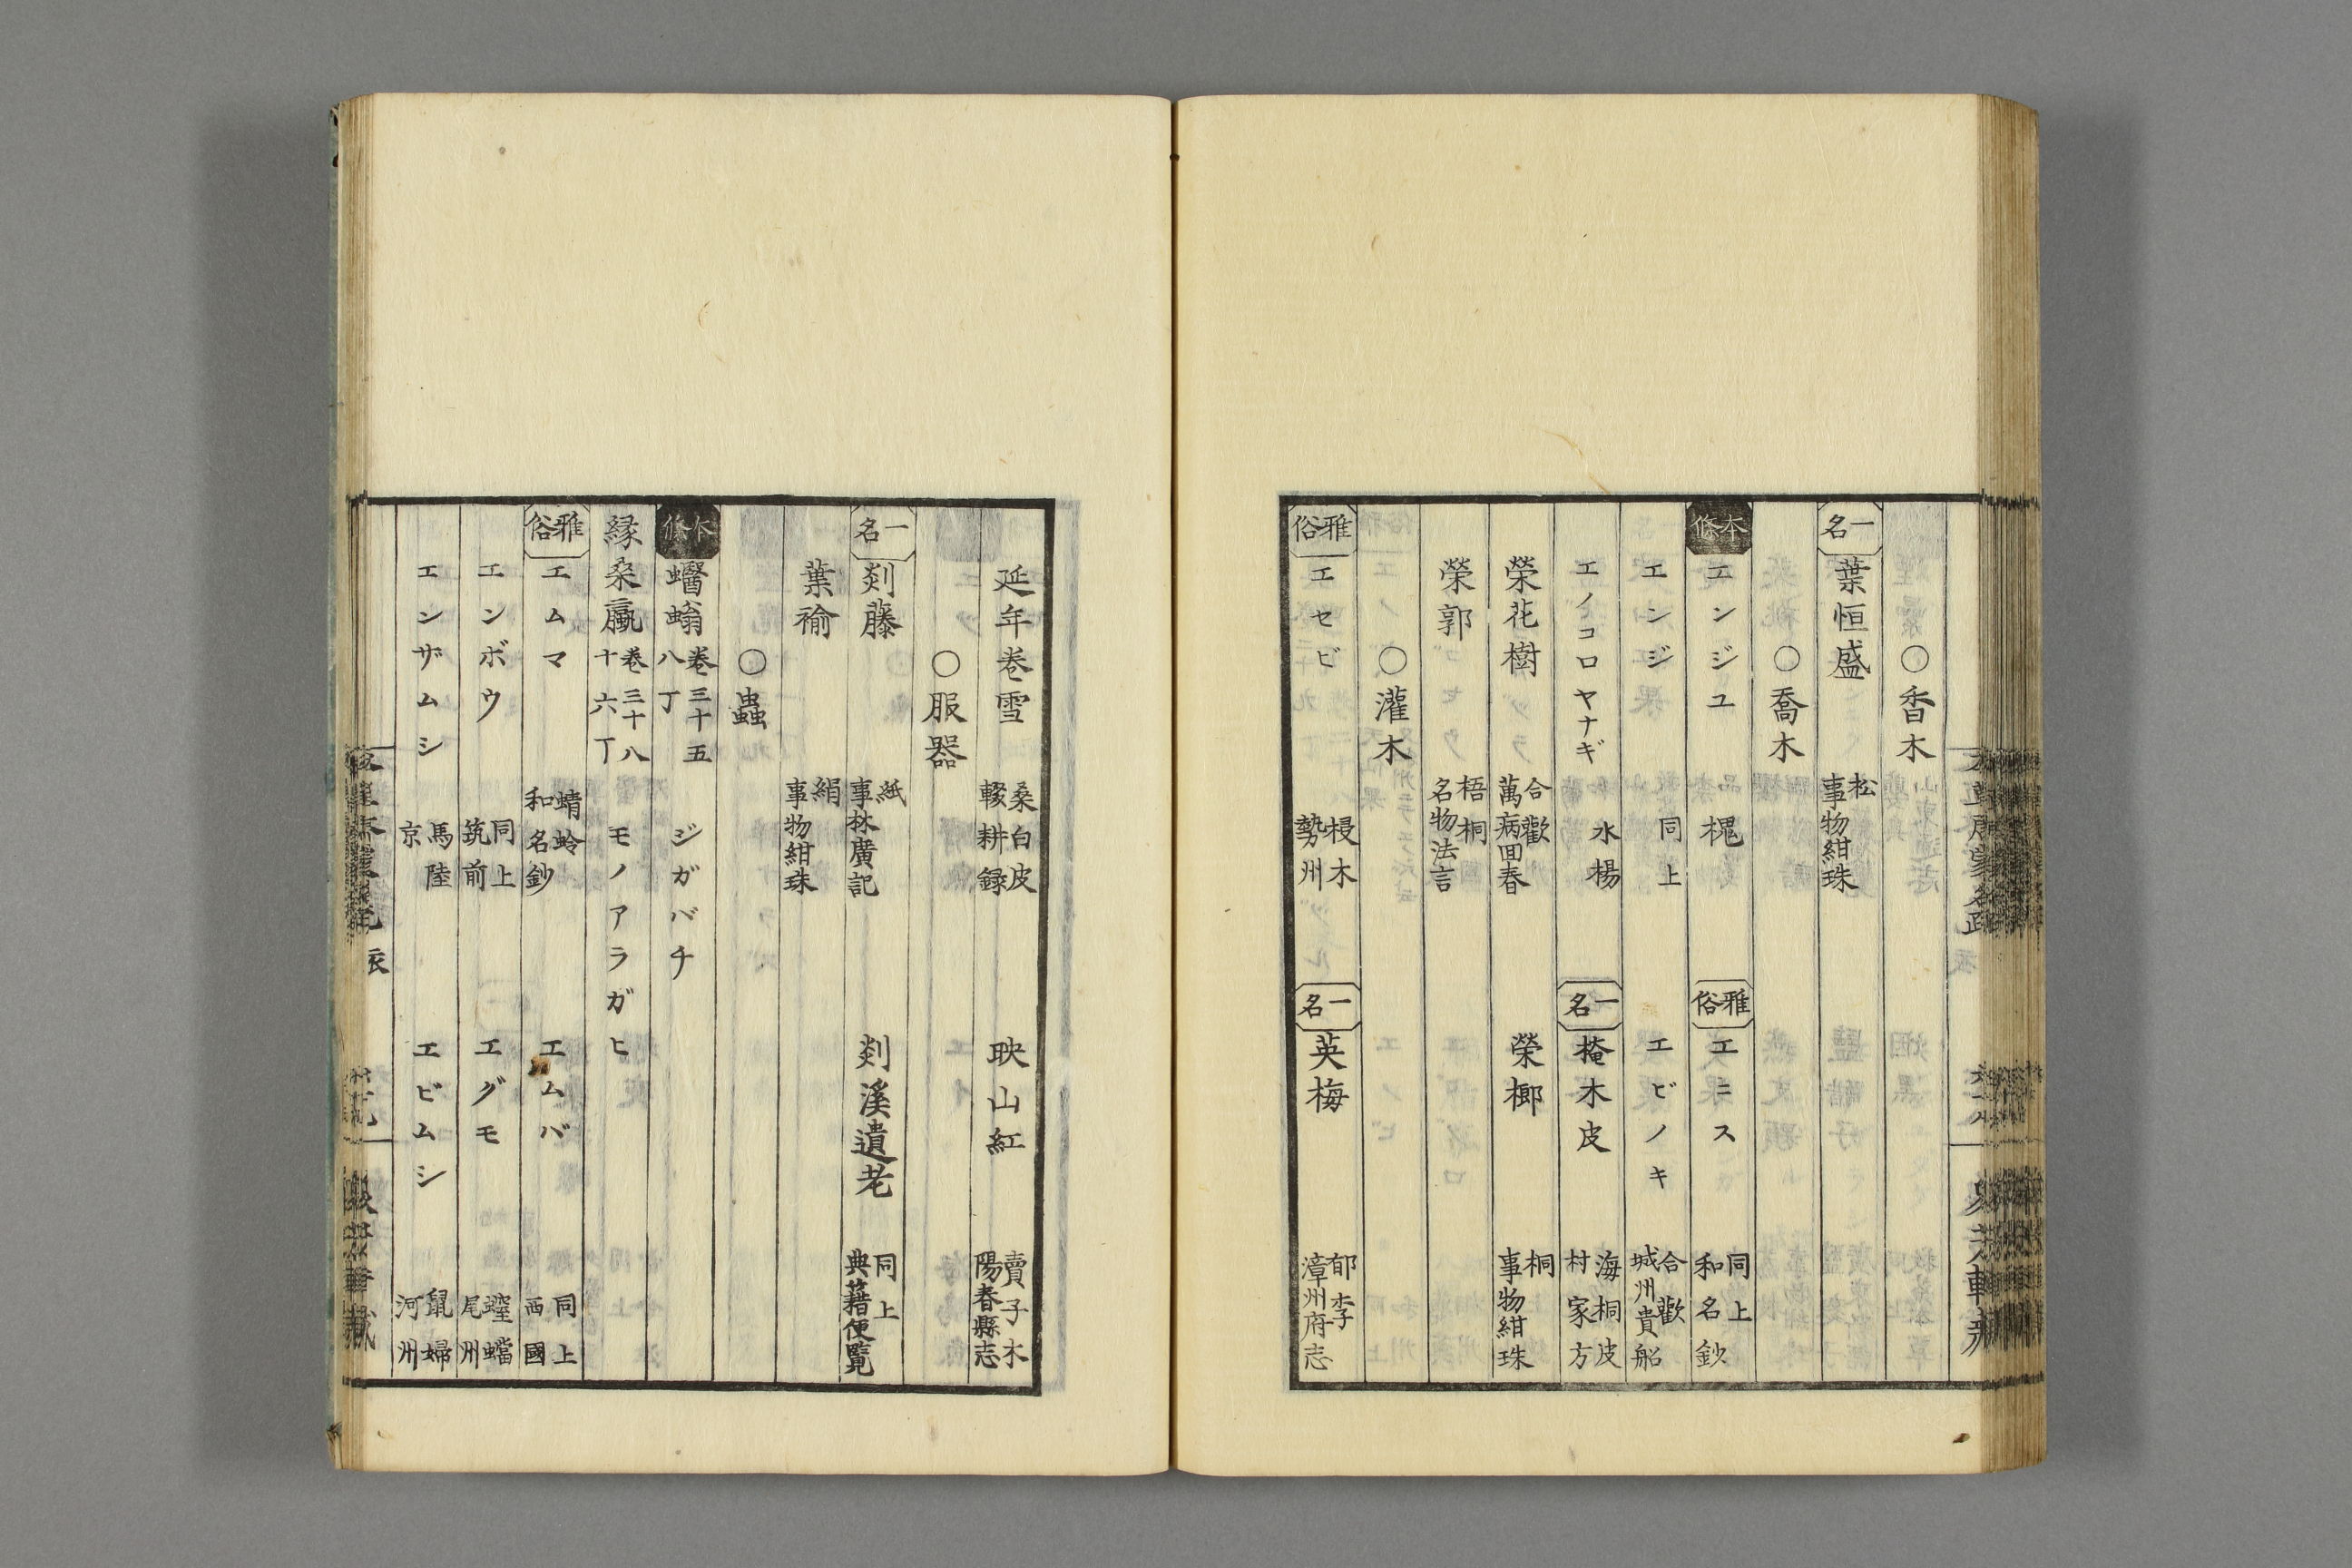 ○香木
一名 葉恒盛 松 事物紺珠
○喬木
本條 エンジユ 槐 雅俗 エニス 同上 和名鈔
エンジ 同上 エビノキ 合歡 城州貴船
エノコロヤナギ 水楊 一名 掩木皮 海桐皮 村家方
榮花樹 合歡 萬病回春 榮榔 桐 事物紺珠
榮郭 梧桐 名物法言
○灌木
雅俗 エセビ 梫木 勢州 一名 英梅 郁李 漳州府志
延年卷雪 桑白皮 輟耕録 映山紅 賣子木 陽春縣志
○服器
一名 剡藤 紙 事林廣記 剡溪遺老 同上 典藉便覽
葉褕 絹 事物紺珠
○蟲
本條 蠮螉 卷三十五 八丁 ジガバチ
縁桑蠃 卷三十八 十六丁 モノアラガヒ
雅俗 エムマ 蜻蛉 和名鈔 エムバ 同上 西國
エンボウ 同上 筑前 エグモ 螲蟷 尾州
エンザムシ 馬陸 京 エビムシ 鼠婦 河州
衣